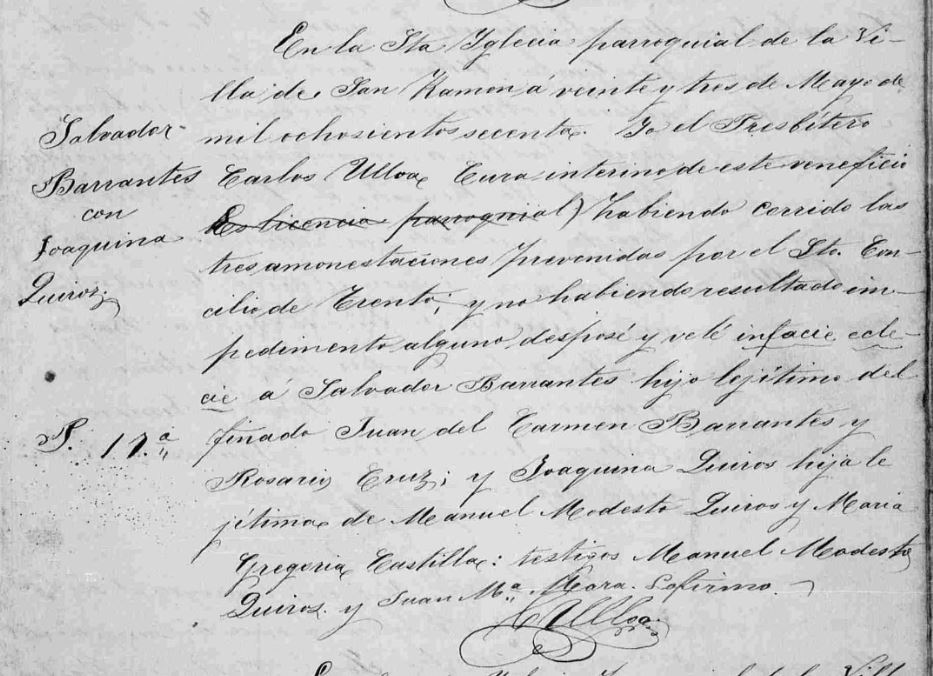 En la Sta Yglecia parroquial de la Vi-
lla de San Ramon á veinte y tres de Mayo de
mil ochosientos secenta. Yo el Presbítero
Carlos Ulloa Cura interino de este veneficio
licencia parroquial) habiendo corrido las
tres amonestaciones prevenidas por el Sto. Con-
cilio de Trento; y no habiendo resultado im-
pedimento alguno, desposé y velé infacie ecle-
cie á Salvador Barrantes hijo lejítimo del
finado Juan del Carmen Barrantes y
Rosario Cruz; y Joaquina Quiros hija le
jítima de Manuel Modesto Quiros y Maria
Gregoria Castilla: testigos Manuel Modesto
Quiros y Juan Mª. Mora. Lo firmo.
C Ulloa
Salvador
Barrantes
con
Joaquina
Quiroz
P. 17.ª